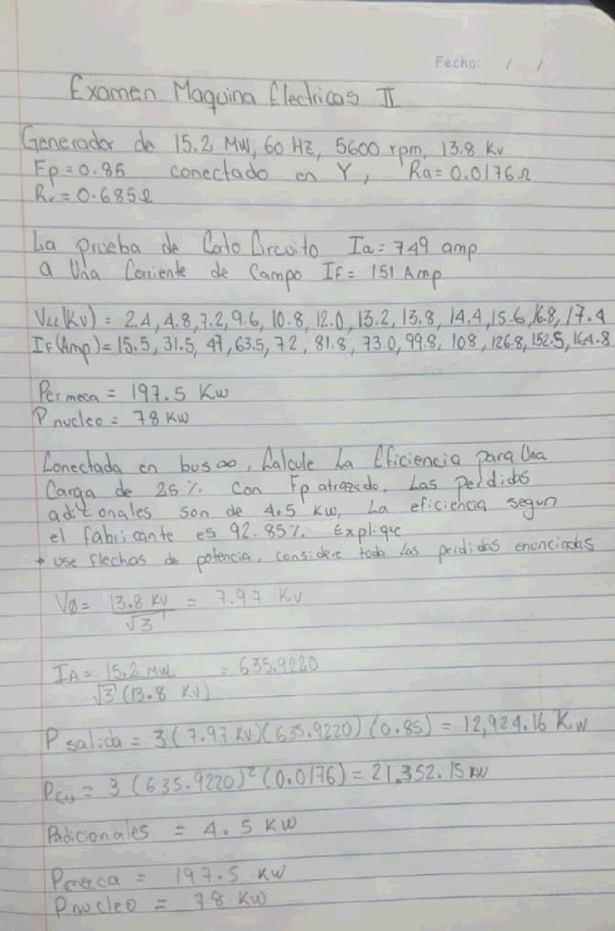 Fecha: / /
Examen Maquina Electricas II
Generador de 15.2 MW, 60 HZ, 5600 rpm, 13.8 Kv
Fp=0.85 conectado en Y, Ra=0.0176Ω
=0.685Ω
La prueba de Corto Circuito Ia=749 amp
a Una Corriente de Campo IF= 151 Amp
VLL(KV) = 2.4, 4.8, 7.2, 9.6, 10.8, 12.0, 13.2, 13.8, 14.4, 15.6, 16.8, 17.4
IF(Amp)=15.5, 31.5, 47, 63.5, 72, 81.8, 73.0, 99.8, 108, 126.8, 152.5, 164.8
Permeca = 197.5 Kw
P nucleo = 78 KW
Conectada en bus∞, Calcule La Eficiencia para Una
Carga de 25% Con Fp atrazado. Las perdidas
aditonales son de 4.5 KW, La eficiencia segun
el fabricante es 92.85%. Explique
* use flechas de potencia, considere toda las perdidas enunciadas
VØ= 13.8 KV / √3 = 7.97 KV
IA= 15.2 MW / √3 (13.8 KV) = 635.9220
P salida = 3(7.97 KV)(635.9220)(0.85) = 12,924.16 Kw
Pcu = 3 (635.9220)² (0.0176) = 21,352.15 KW
Padicionales = 4.5 KW
Pmeca = 197.5 KW
Pnucleo = 78 KW